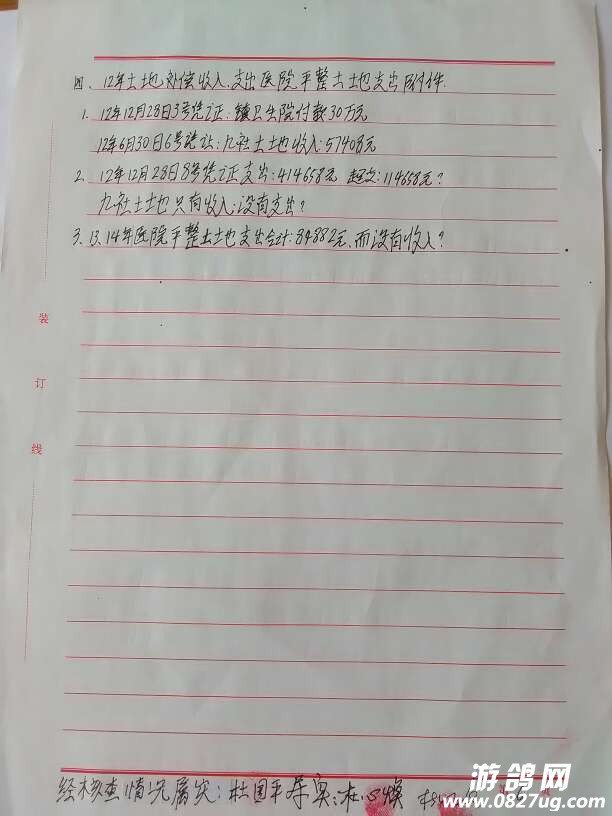 四、12年土地补偿收入、支出医院平整土地支出附件.
1. 12年12月28日3号凭证:镇卫生院付款30万元
12年6月30日6号凭证:九社土地收入:57408元
2. 12年12月28日8号凭证支出:414658元 超支:114658元?
九社土地只有收入;没有支出?
3. 13.14年医院平整土地支出合计:84882元,而没有收入?
装
订
线
经核查情况属实:杜国平 杜心焕
游鸽网
www.0827ug.com